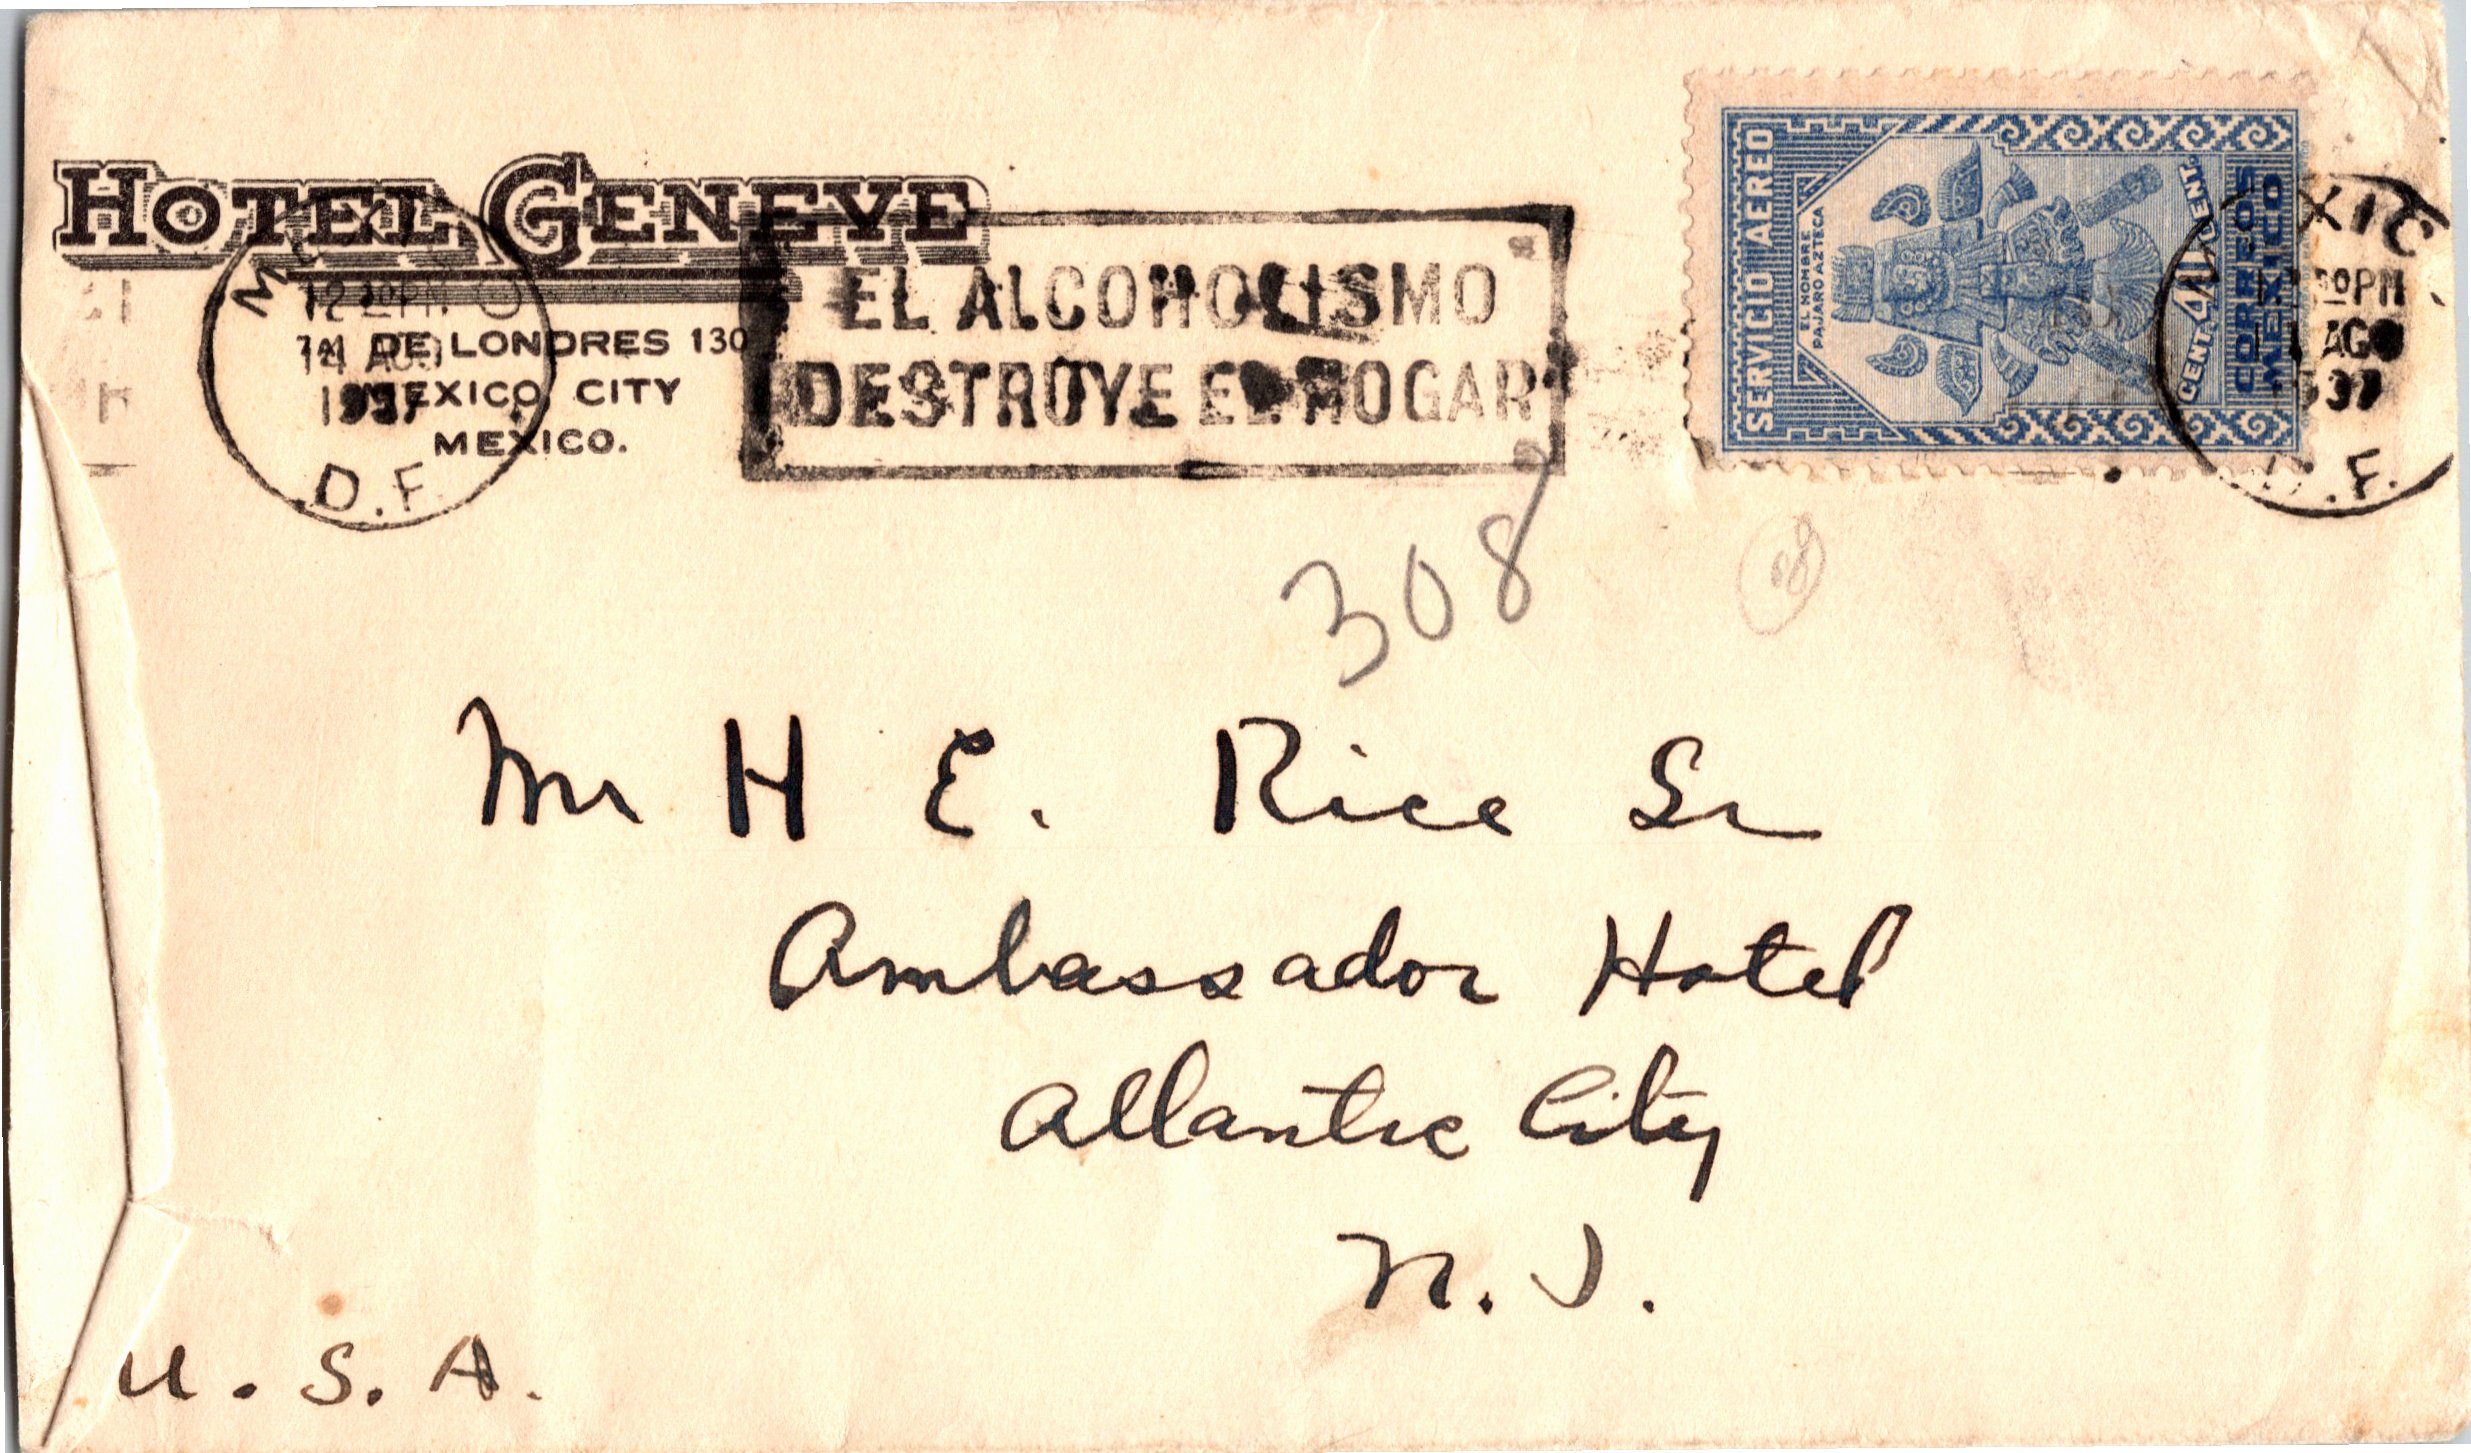 HOTEL GENEVE
7A DE LONDRES 130
MEXICO CITY
MEXICO.
12 30PM
14 AGO
1937
D.F.
EL ALCOHOLISMO
DESTRUYE EL HOGAR
SERVICIO AEREO
EL HOMBRE
PAJARO AZTECA
CENT. 40 CENT.
CORREOS
MEXICO
30PM
AGO
937
D.F.
308
Mr H E. Rice Sr
Ambassador Hotel
Atlantic City
N. J.
U. S. A.